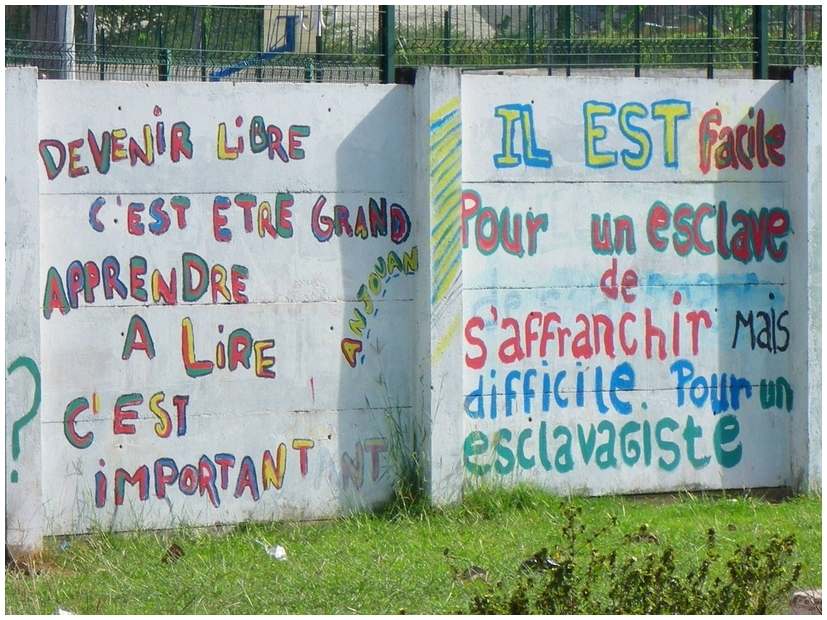 DEVENIR LIBRE
C'EST ETRE GRAND
APPRENDRE
A LIRE
C'EST
IMPORTANT
ANJOUAN
?
IL EST facile
Pour un esclave
de
s'affranchir Mais
difficile Pour un
esclavagiste